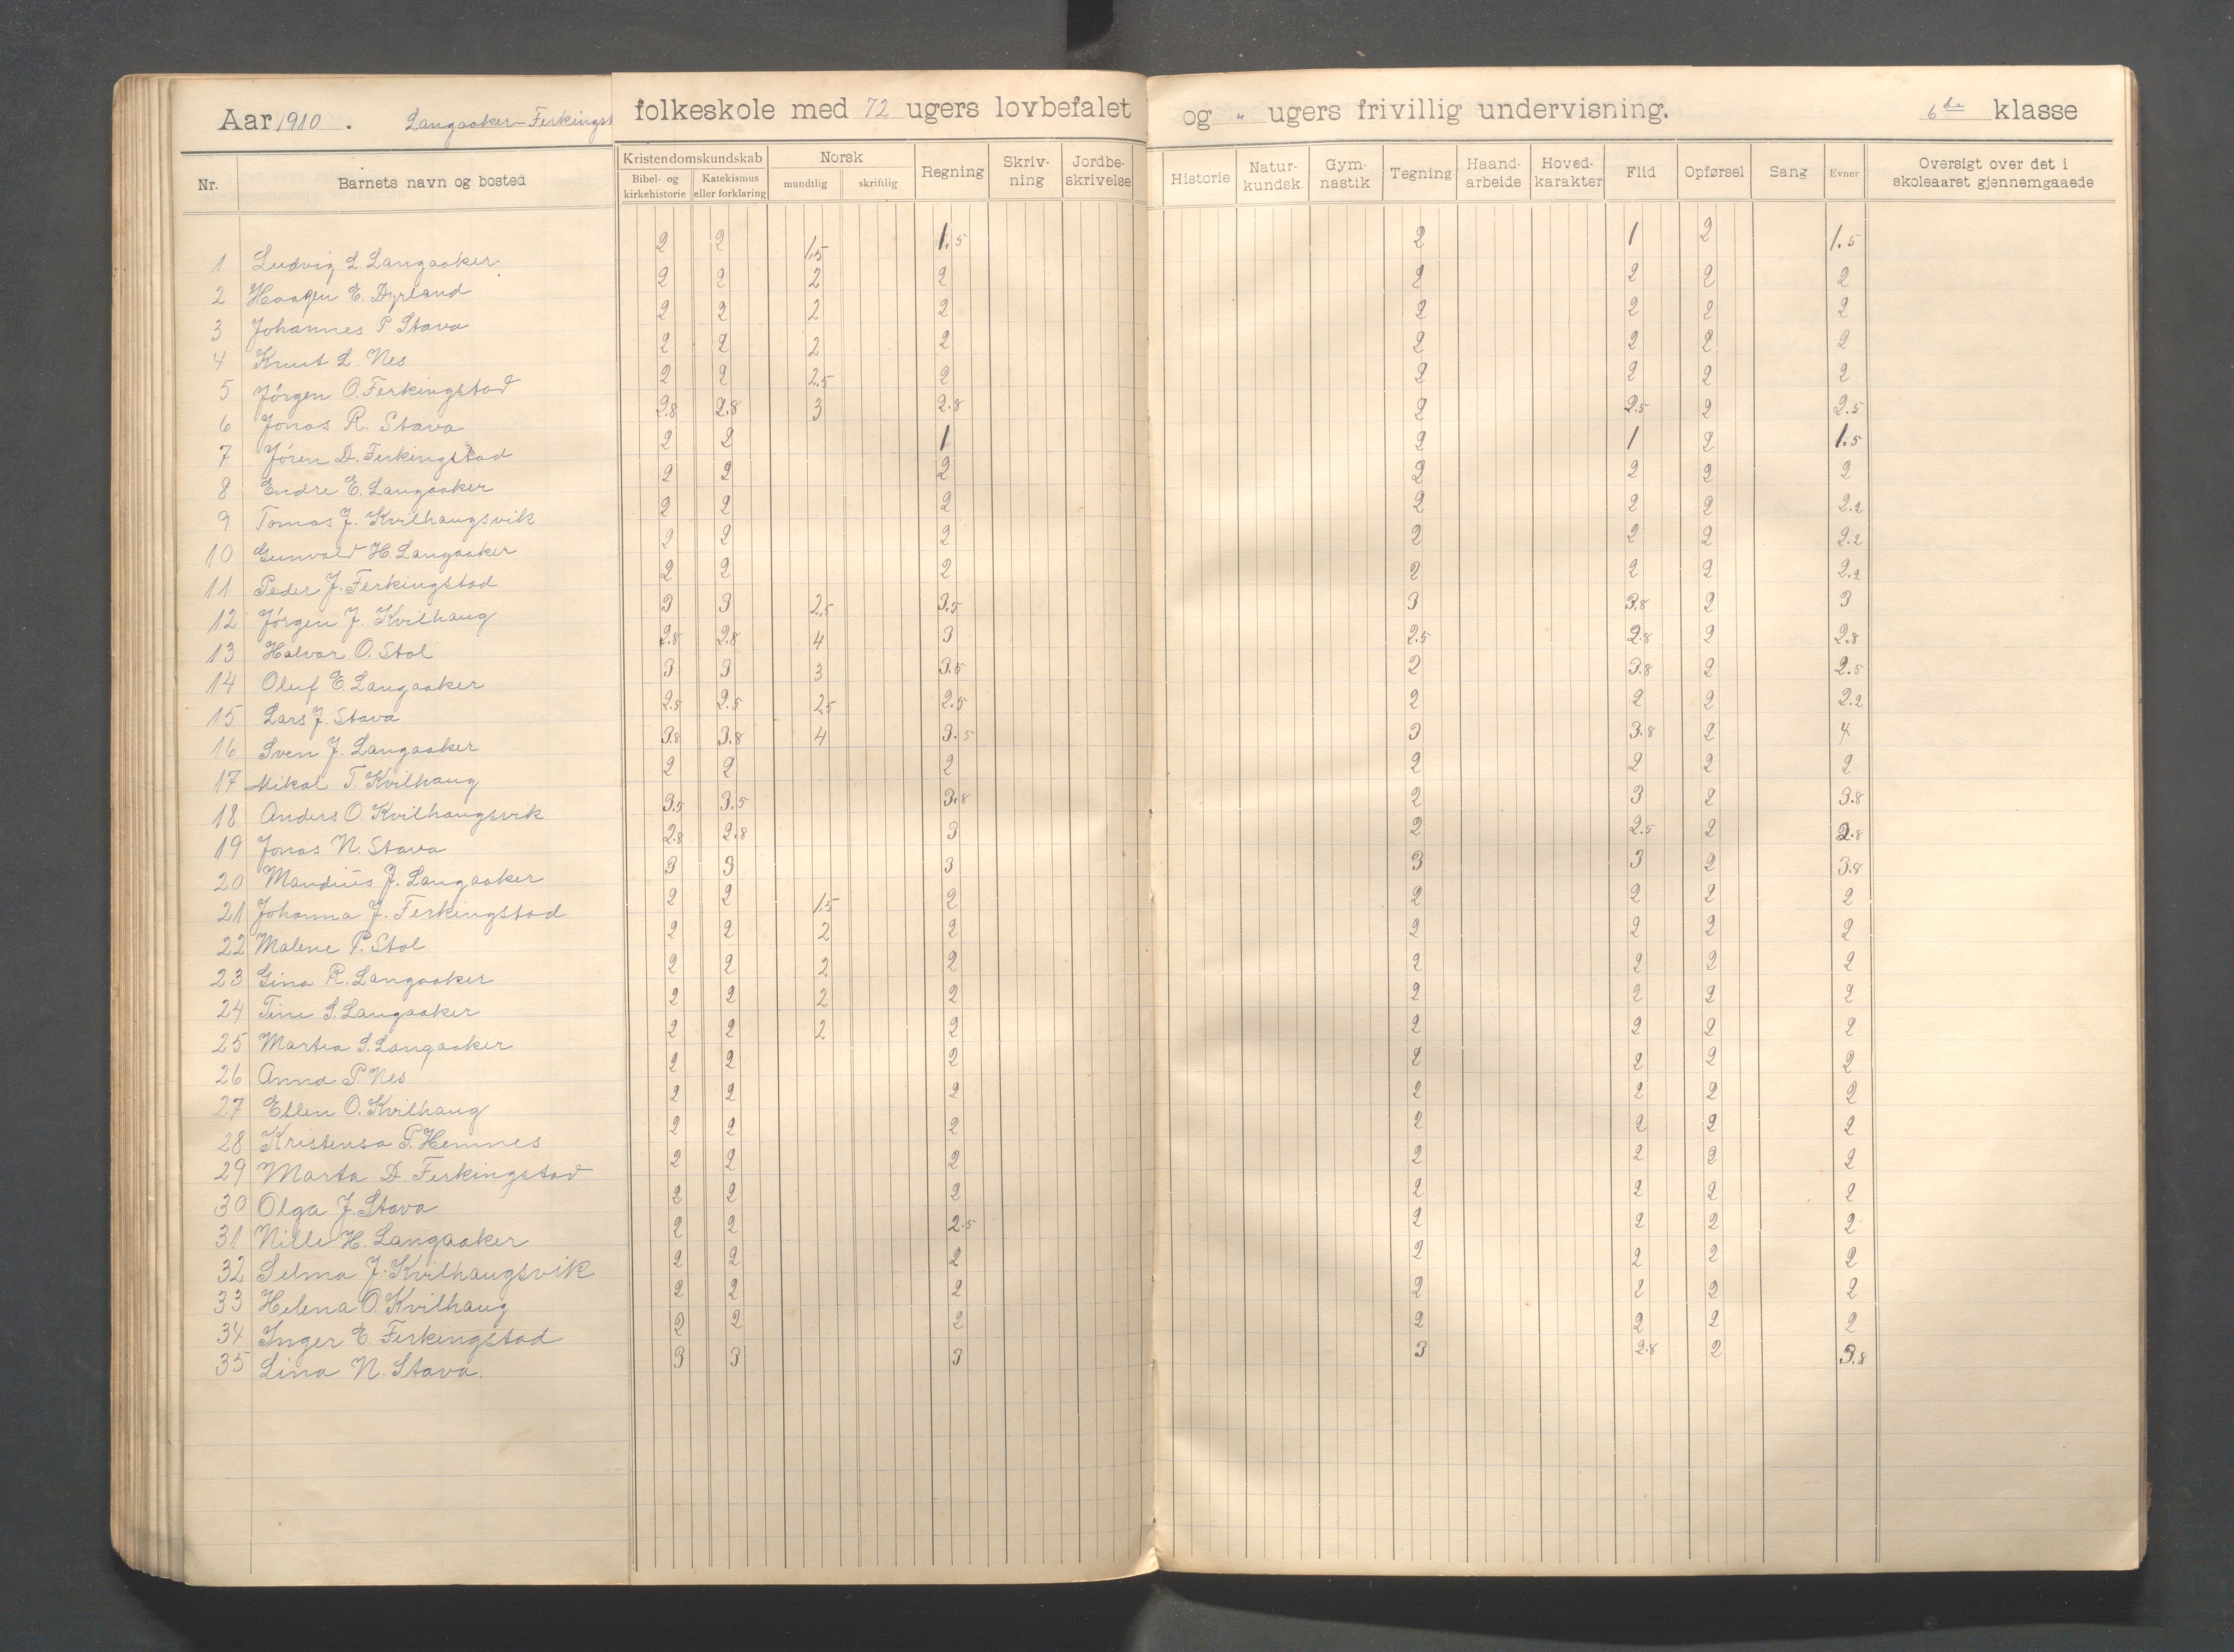 Aar 1910. Langaaker-Ferkingst folkeskole med 72 ugers lovbefalet og " ugers frivillig undervisning. 6te klasse
Nr. Barnets navn og bosted Kristendomskundskab Bibel- og kirkehistorie Katekismus eller forklaring Norsk mundtlig skriftlig Regning Skriv-ning Jordbe-skrivelse Historie Natur-kundsk. Gym-nastik Tegning Haand-arbeide Hoved-karakter Flid Opførsel Sang Evner Oversigt over det i skoleaaret gjennemgaaede
1 Ludvig L. Langaaker 2 2 1.5 1.5 2 1 2 1.5
2 Haagen E. Dyrland 2 2 2 2 2 2 2 2
3 Johannes P Stava 2 2 2 2 2 2 2 2
4 Knut L. Nes 2 2 2 2 2 2 2 2
5 Jörgen O. Ferkingstad 2 2 2.5 2 2 2 2 2
6 Jonas R. Stava 2.8 2.8 3 2.8 2 2.5 2 2.5
7 Jören D. Ferkingstad 2 2 1 2 1 2 1.5
8 Endre E. Langaaker 2 2 2 2 2 2 2
9 Tomas J. Kvilhaugsvik 2 2 2 2 2 2 2.2
10 Gunvald H. Langaaker 2 2 2 2 2 2 2.2
11 Peder J. Ferkingstad 2 2 2 2 2 2 2.2
12 Jörgen J. Kvilhaug 3 3 2.5 3.5 3 3.8 2 3
13 Halvar O. Stol 2.8 2.8 4 3 2.5 2.8 2 2.8
14 Oluf E. Langaaker 3 3 3 3.5 2 3.8 2 2.5
15 Lars J. Stava 2.5 2.5 2.5 2.5 2 2 2 2.2
16 Sven J. Langaaker 3.8 3.8 4 3.5 3 3.8 2 4
17 Mikal T. Kvilhaug 2 2 2 2 2 2 2
18 Anders O. Kvilhaugsvik 3.5 3.5 3.8 2 3 2 3.8
19 Jonas N. Stava 2.8 2.8 3 2 2.5 2 2.8
20 Mandius J. Langaaker 3 3 3 3 3 2 3.8
21 Johanna J. Ferkingstad 2 2 1.5 2 2 2 2 2
22 Malene P. Stol 2 2 2 2 2 2 2 2
23 Gina R. Langaaker 2 2 2 2 2 2 2 2
24 Tine S. Langaaker 2 2 2 2 2 2 2 2
25 Martea S. Langaaker 2 2 2 2 2 2 2 2
26 Anna P. Nes 2 2 2 2 2 2 2
27 Ellen O. Kvilhaug 2 2 2 2 2 2 2
28 Kristensa P. Hemnes 2 2 2 2 2 2 2
29 Marta D. Ferkingstad 2 2 2 2 2 2 2
30 Olga J. Stava 2 2 2 2 2 2 2
31 Nille H. Langaaker 2 2 2.5 2 2 2 2
32 Selma J. Kvilhaugsvik 2 2 2 2 2 2 2
33 Helena O. Kvilhaug 2 2 2 2 2 2 2
34 Inger E. Ferkingstad 2 2 2 2 2 2 2
35 Lina N. Stava. 3 3 3 3 2.8 2 3.8